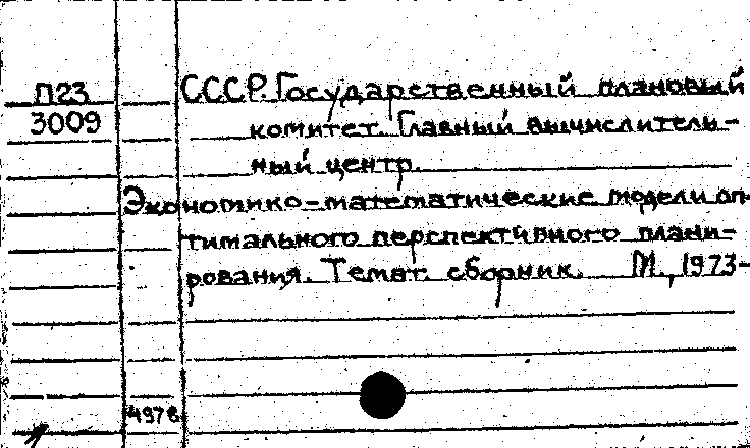 П23
3009
СССР. Государственный плановый
комитет. Главный вычислитель-
ный центр.
Экономико-математические модели оп-
тимального перспективного плани-
рования. Темат. сборник. М., 1973-